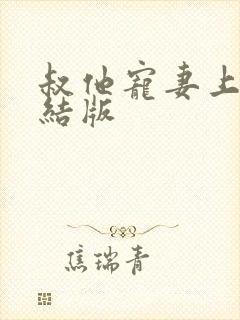 叔他寵妻上
結版
焦瑞青